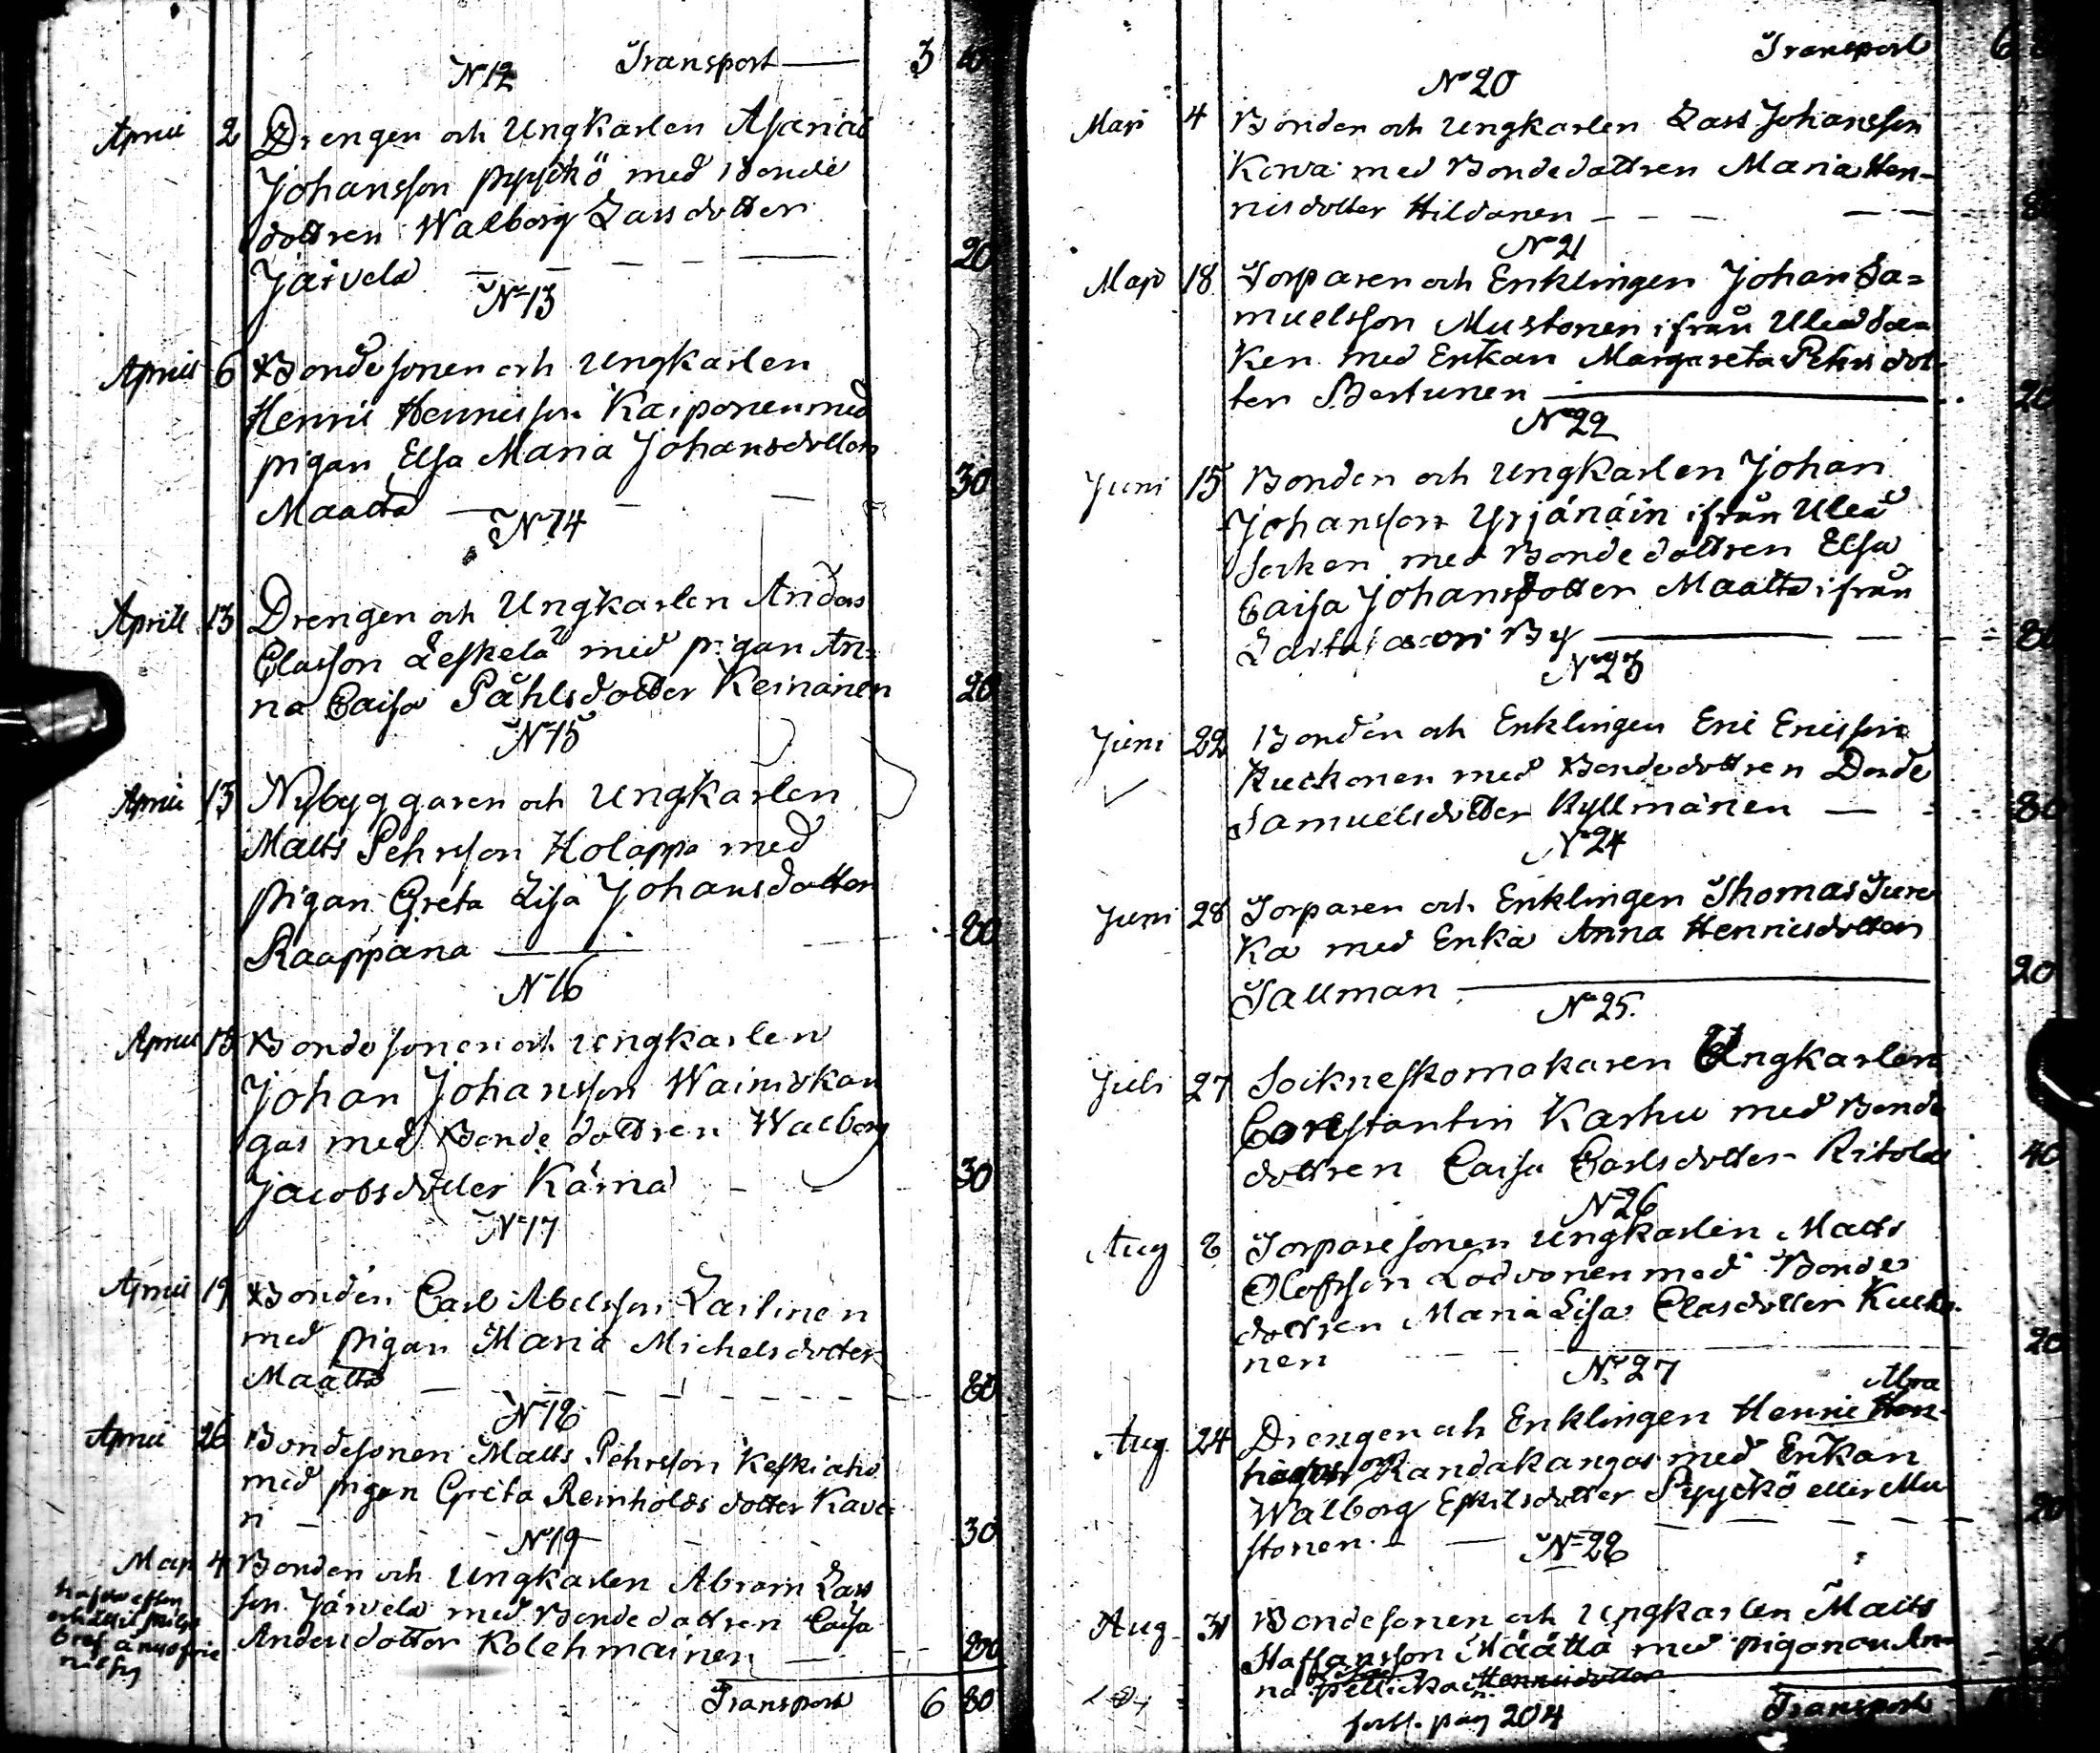 Transport — 3
N 12
April 2 Drengen och Ungkarlen
Johansson Pyyckö med Bonde
dottren Walborg Larsdotter
Järvelä — — — — — 20
N 13
April 6 Bondesonen och Ungkarlen
Henric Henricsson Karponen med
pigan Elsa Maria Johansdotter
Maatta — — — 30
N 14
April 13 Drengen och Ungkarlen Anders
Classon Leskelä med pigan An=
na Caisa Påhlsdotter Keinänen 20
N 15
April 13 Nybyggaren och Ungkarlen
Matts Pehrsson Holappa med
pigan Greta Lisa Johansdotter
Raappana — 20
N 16
April 13 Bondesonen och ungkarlen
Johan Johansson Wainiökan
gas med Bonde dottren Walborg
Jacobsdotter Kärnä — 30
N 17
April 19 Bonden Carl Abelsson Laitinen
med pigan Maria Michelsdotter
Maatta — — — — 80
N 18
April 26 Bondesonen Matts Pehrsson Keskiaho
med pigan Greta Reinholdsdotter Kave
n — 30
N 19
Maji 4 Bonden och Ungkarlen Abram Lars
son Järvelä med Bondedottren Caisa
Andersdotter Kolehmainen — 80
Transport 6 80
Transport 6
N 20
Maji 4 Bonden och Ungkarlen Lars Johansson
Kova med Bondedottren Maria Hen-
ricsdotter Hildanen — — — — 80
N 21
Maji 18 Torparen och Enklingen Johan Sa=
muelsson Mustonen ifrån Uleå Soc-
ken med Enkan Margareta Pehrsdot-
ter Bertunen — 20
N 22
Juni 15 Bonden och Ungkarlen Johan
Johansson Yrjänäin ifrån Uleå
Socken med Bondedottren Elsa
Caisa Johansdotter Maatta ifrån
By — 80
N 23
Juni 22 Bonden och Enklingen Eric Ericsson
Kuckonen med Bondedottren Dorde
Samuelsdotter Kyllmänen — 80
N 24
Juni 28 Torparen och Enklingen Thomas Ture
ka med Enka Anna Henricsdotter
Tallman — 20
N 25.
Juli 27 Sockneskomakaren Ungkarlen
Constantin Karhu med Bonde
dottren Caisa Carlsdotter Ritola 40
N 26
Aug 8 Torparesonen ungkarlen Matts
Oloffsson Lodvonen med Bonde
dottren Maria Lisa Clasdotter Kucko-
nen — 20
N 27
Abra
Aug. 24 Drengen och Enklingen Henric Hen-
Kandakangas med Enkan
Walborg Eskilsdotter Pyyckö eller Mu
stonen. — — — — 20
N 28
Aug 31 Bondesonen och Ungkarlen Matts
Staffansson Määttä med pigan An-
na Henricsdotter
forts. pag 204 Transport